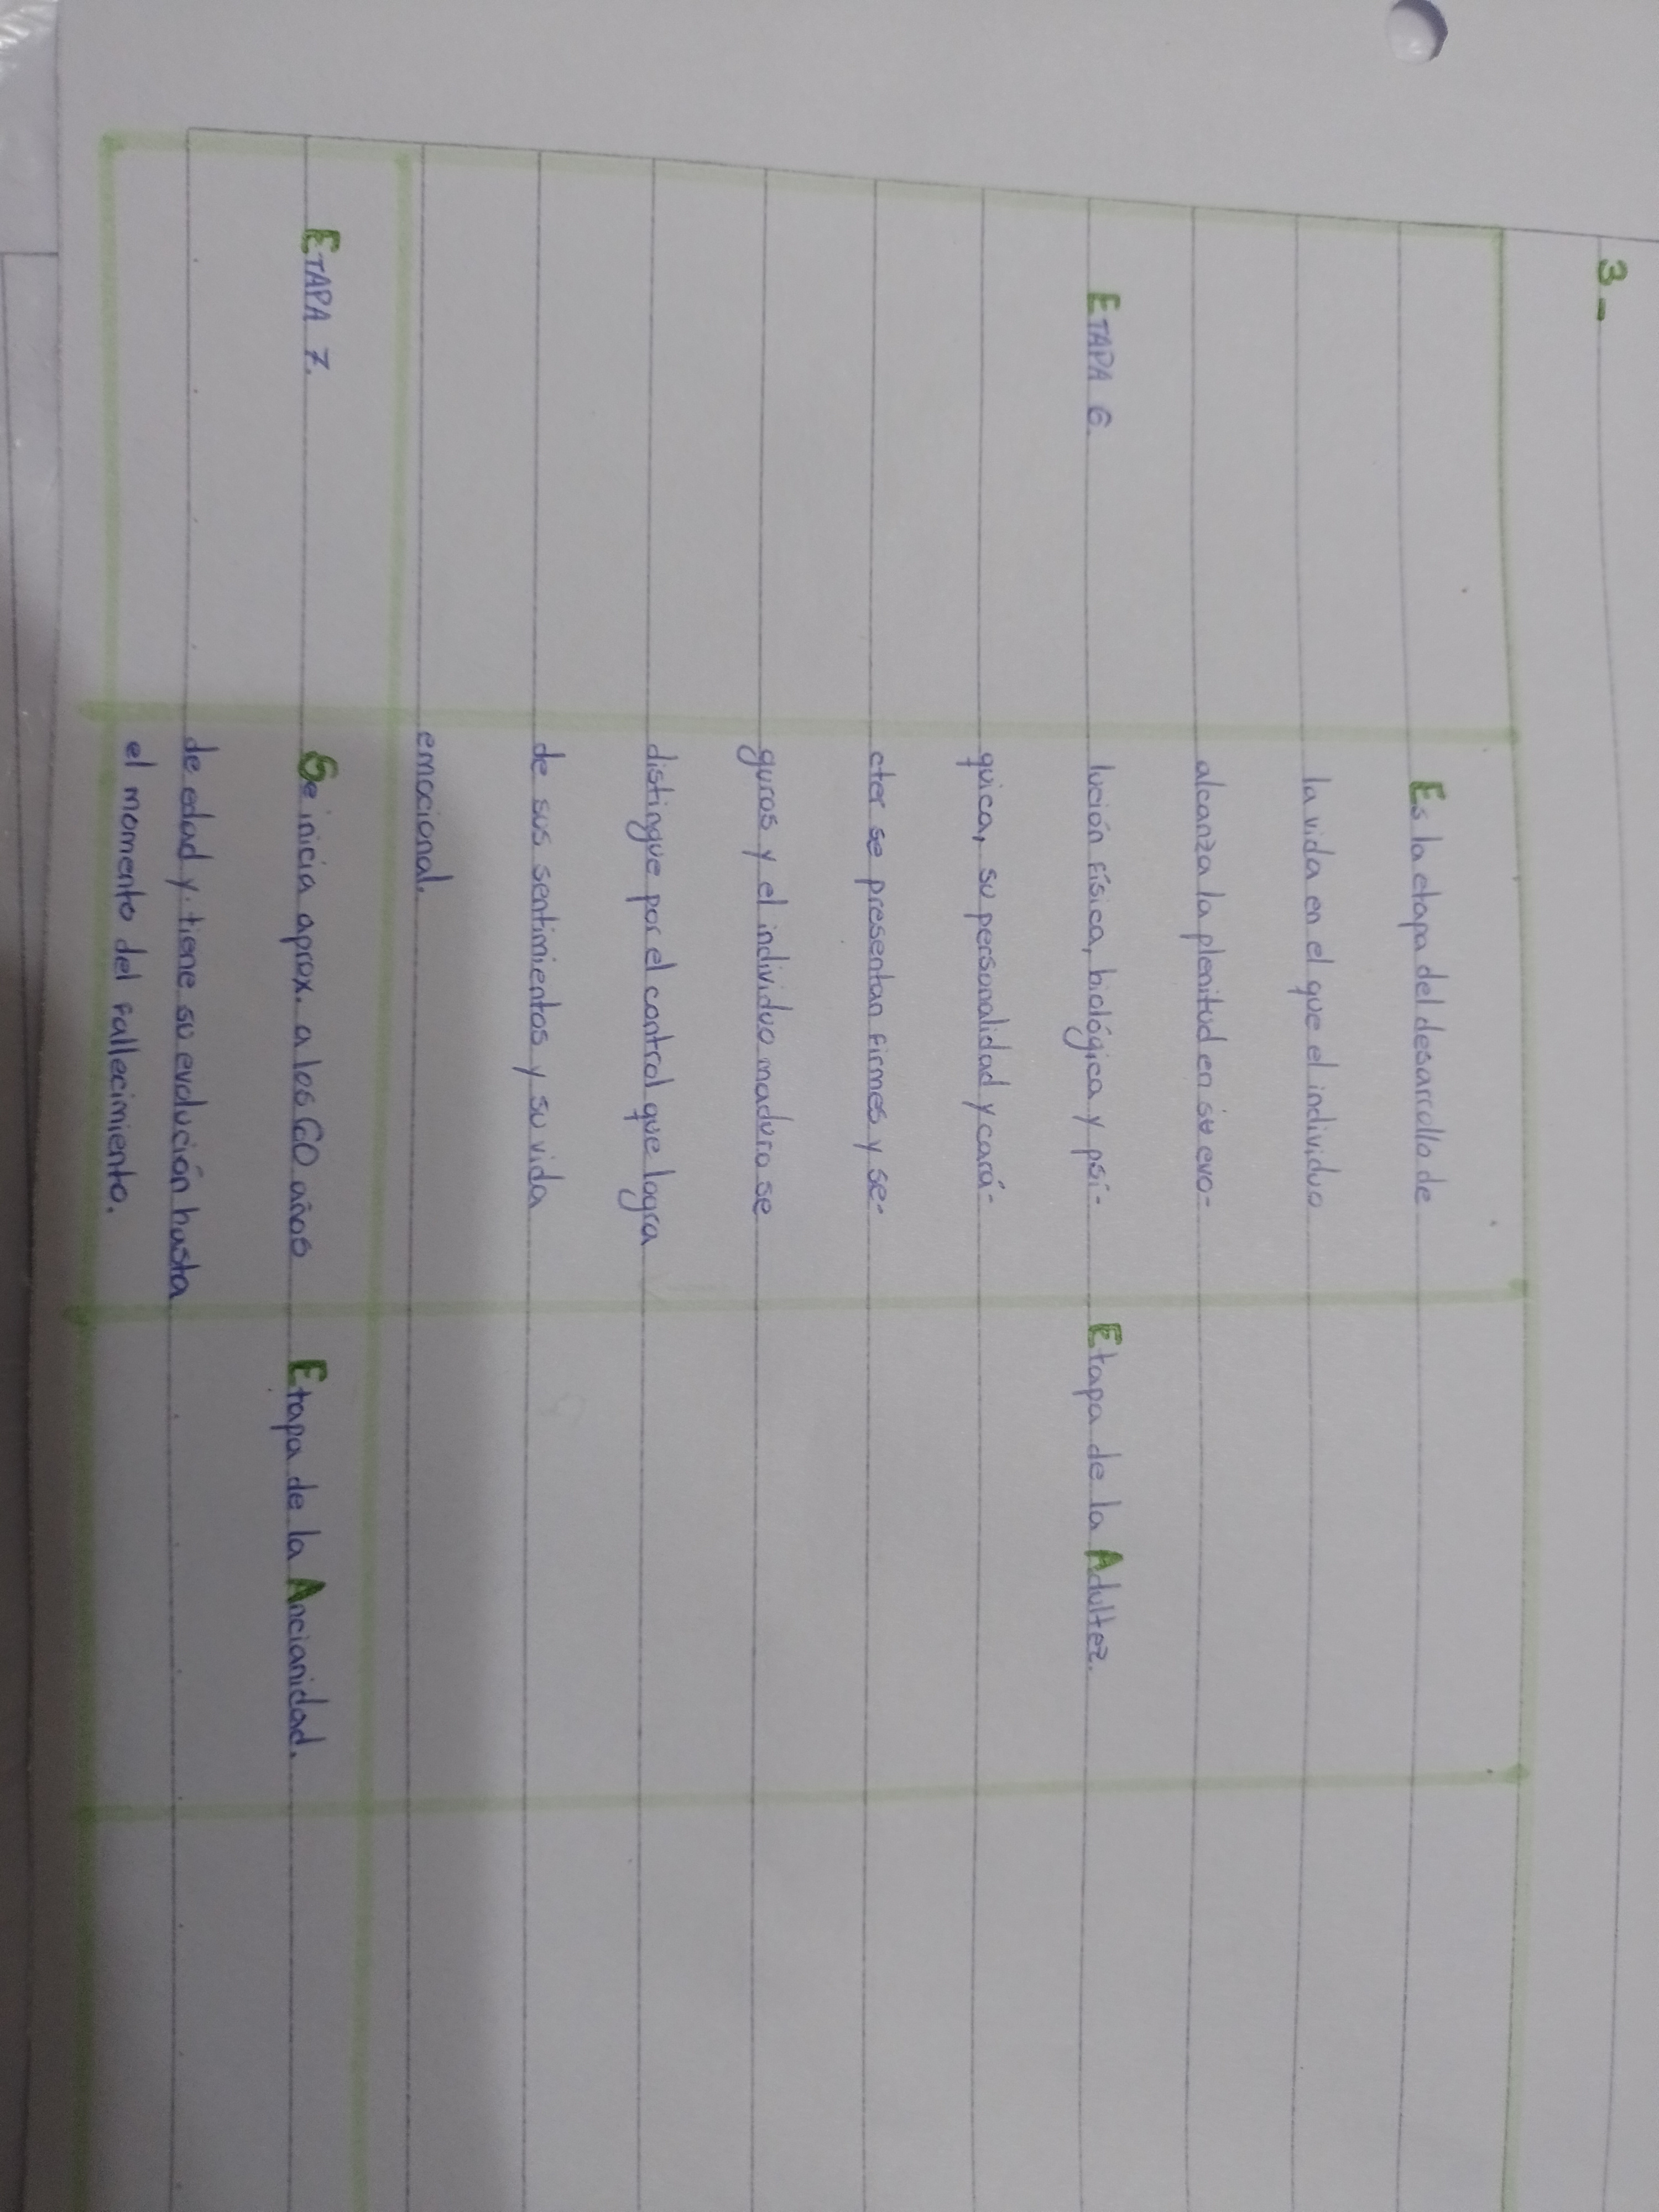 3.-
Es la etapa del desarrollo de
la vida en el que el individuo
alcanza la plenitud en su evo-
ETAPA 6. lución física, biológica y psí- Etapa de la Adultez.
quica, su personalidad y cará-
cter se presentan firmes y se-
guros y el individuo maduro se
distingue por el control que logra
de sus sentimientos y su vida
emocional.
ETAPA 7. Se inicia aprox. a los 60 años Etapa de la Ancianidad.
de edad y tiene su evolución hasta
el momento del fallecimiento.